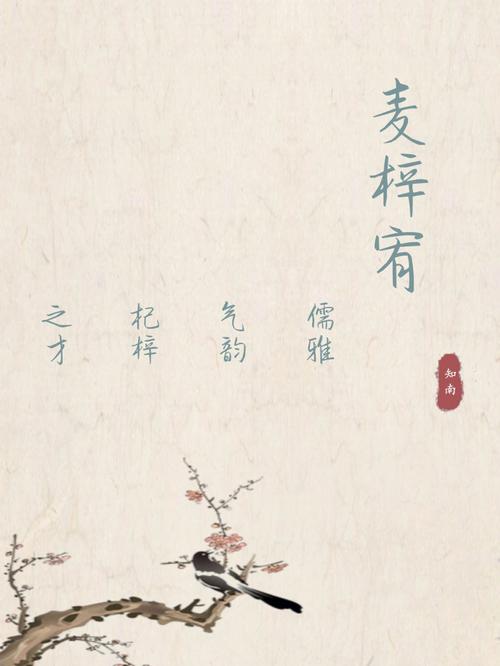 麦梓宥
知南
儒雅
气韵
杞梓
之才